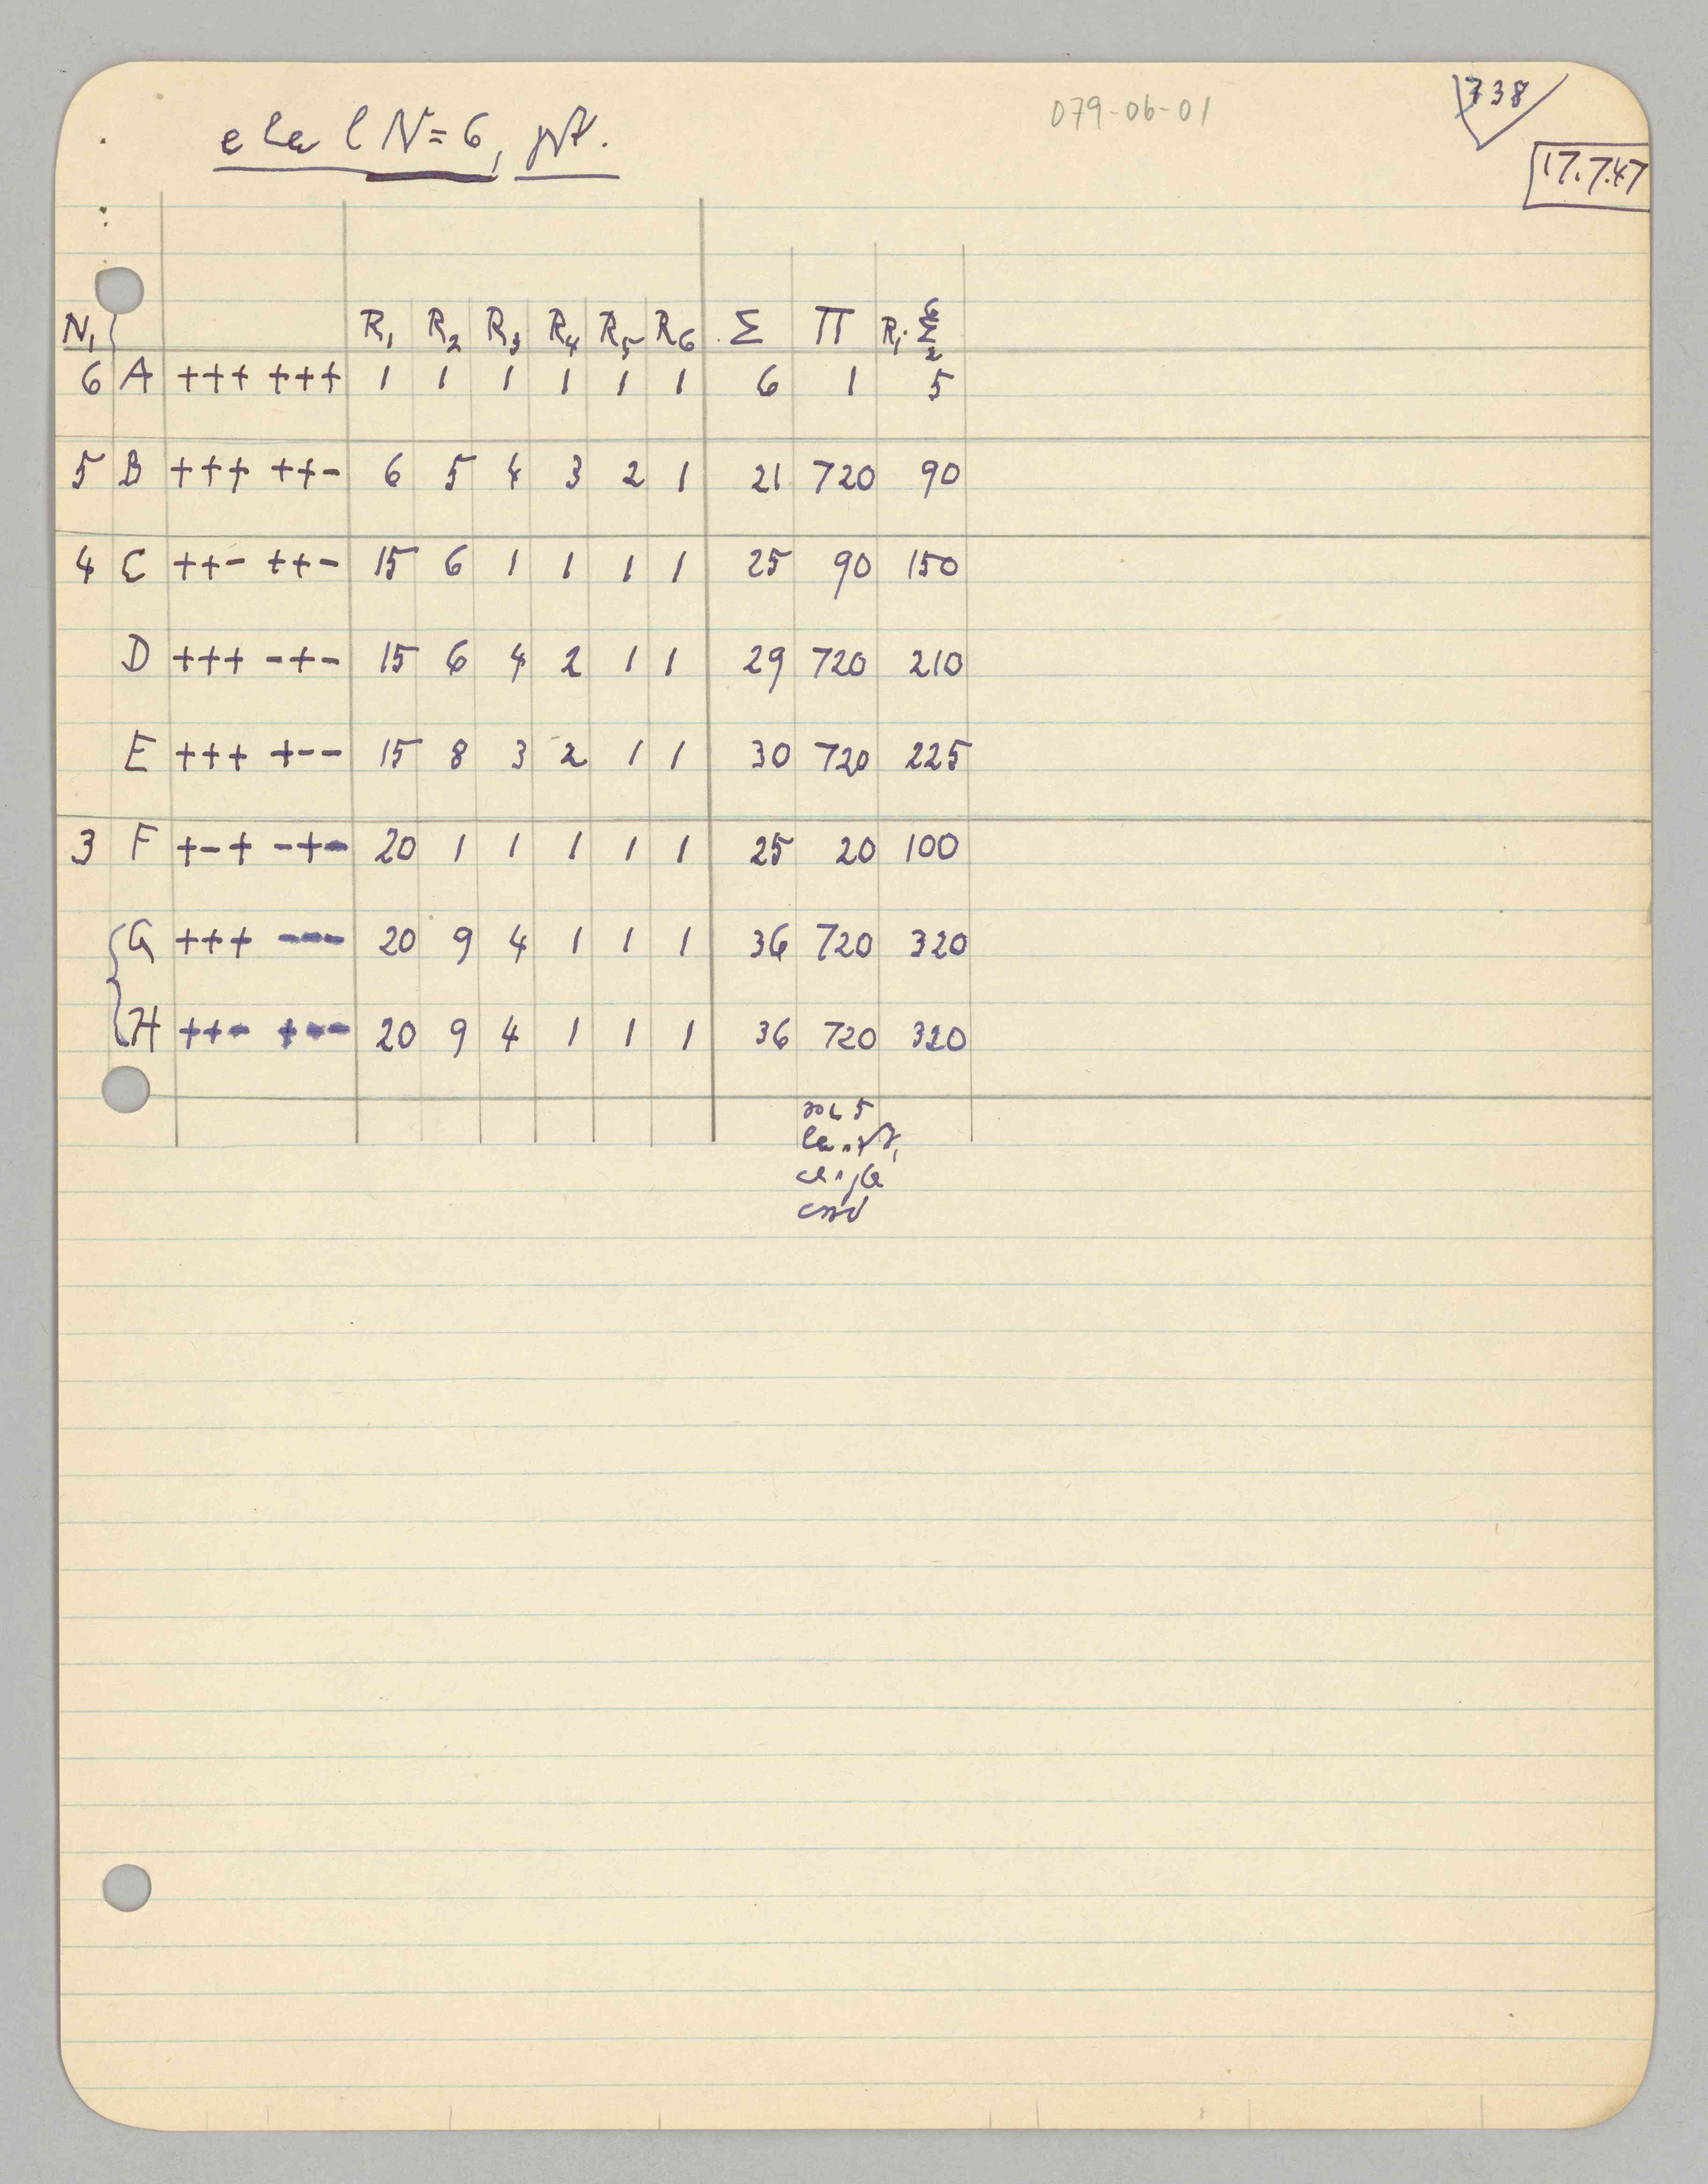 079-06-01
738
17.7.47
N=6,
N₁ R₁ R₂ R₃ R₄ R₅ R₆ Σ Π R₁·Σ₂⁶
6 A +++ +++ 1 1 1 1 1 1 6 1 5
5 B +++ ++- 6 5 4 3 2 1 21 720 90
4 C ++- ++- 15 6 1 1 1 1 25 90 150
D +++ -+- 15 6 4 2 1 1 29 720 210
E +++ +-- 15 8 3 2 1 1 30 720 225
3 F +-+ -+- 20 1 1 1 1 1 25 20 100
G +++ --- 20 9 4 1 1 1 36 720 320
H ++- +-- 20 9 4 1 1 1 36 720 320